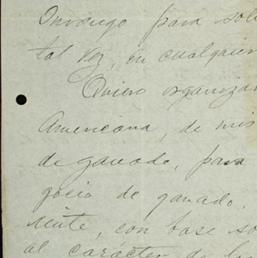 Durango para sol
tal vez, en cualquier
Quiero organizar
Americana, de mis
de ganado, para
gocio de ganado.
mente, con base so
al carácter de la